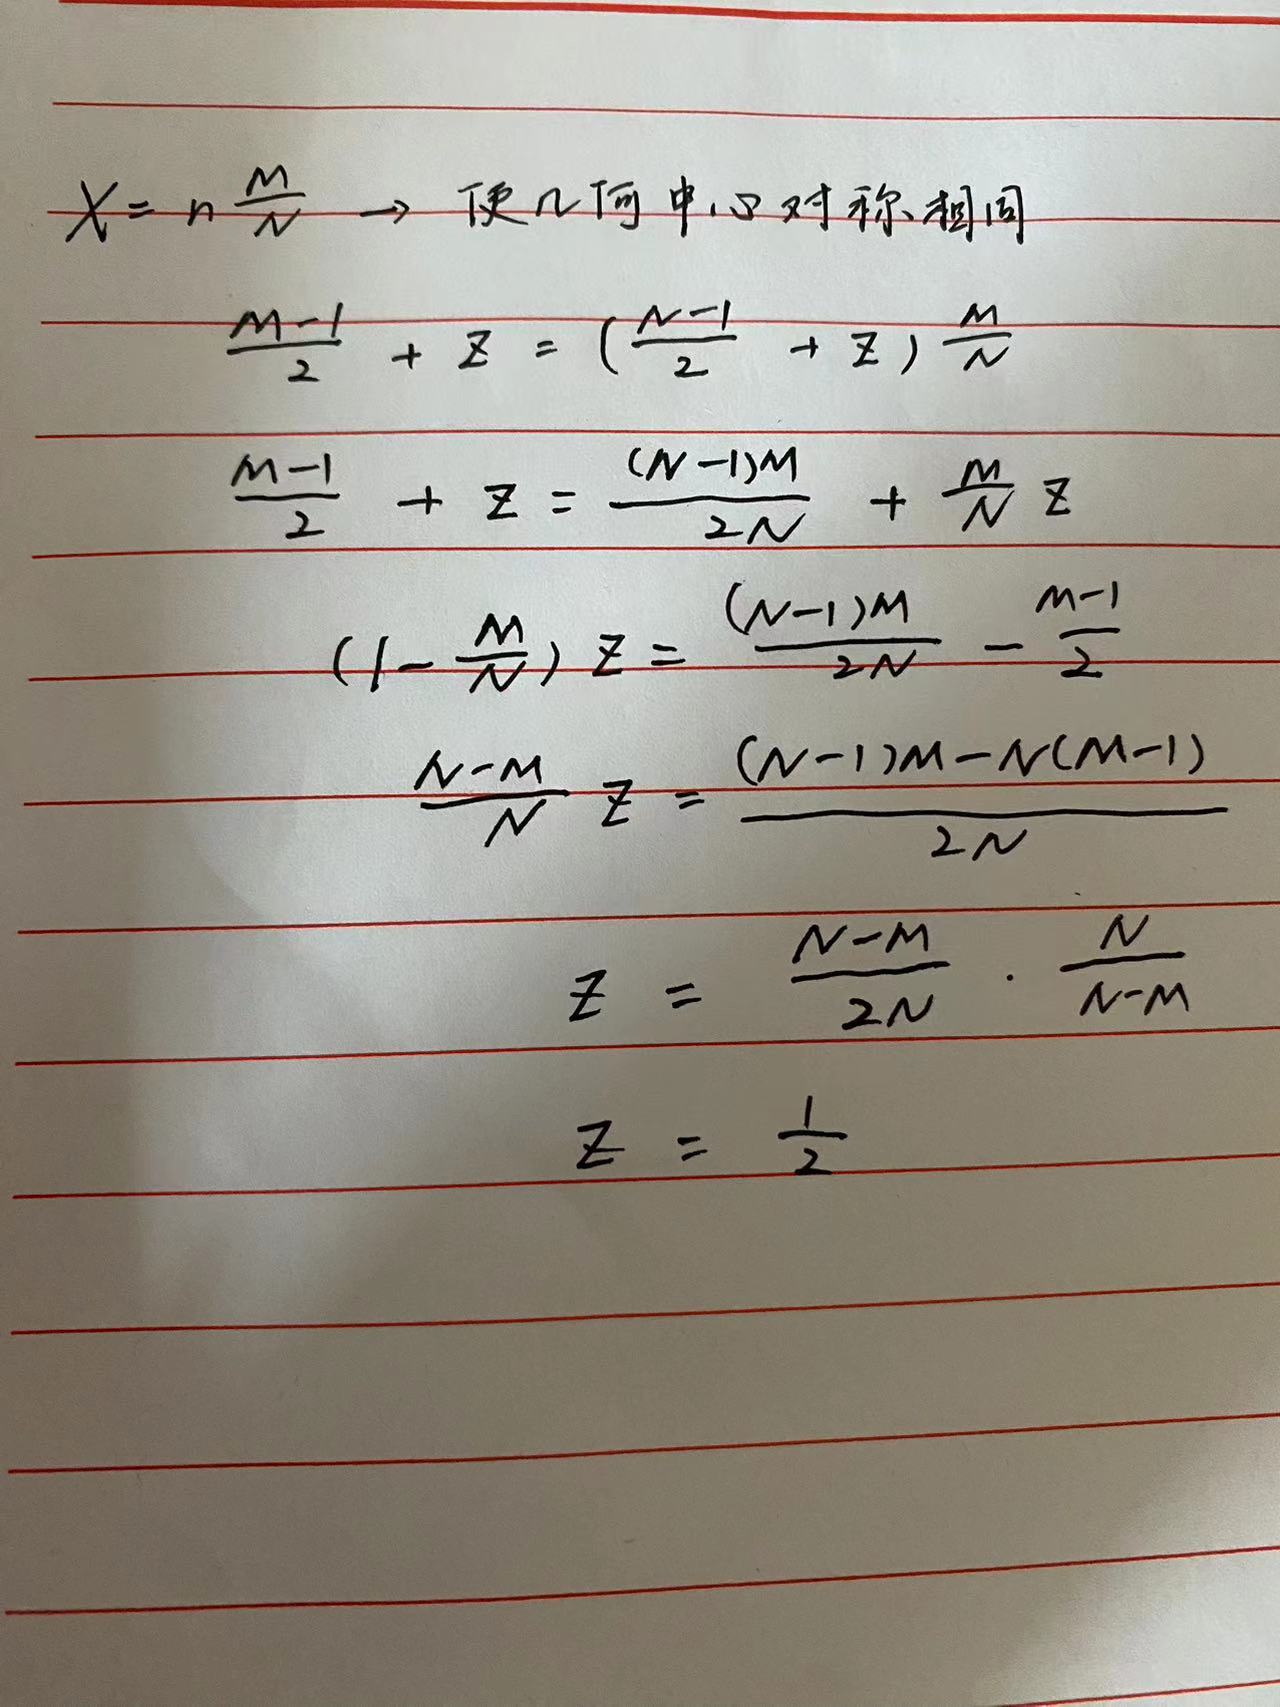 X = n M/N → 使几何中心对称相同
(M-1)/2 + Z = ((N-1)/2 + Z) M/N
(M-1)/2 + Z = (N-1)M/2N + M/N Z
(1 - M/N) Z = (N-1)M/2N - (M-1)/2
(N-M)/N Z = ((N-1)M - N(M-1))/2N
Z = (N-M)/2N · N/(N-M)
Z = 1/2